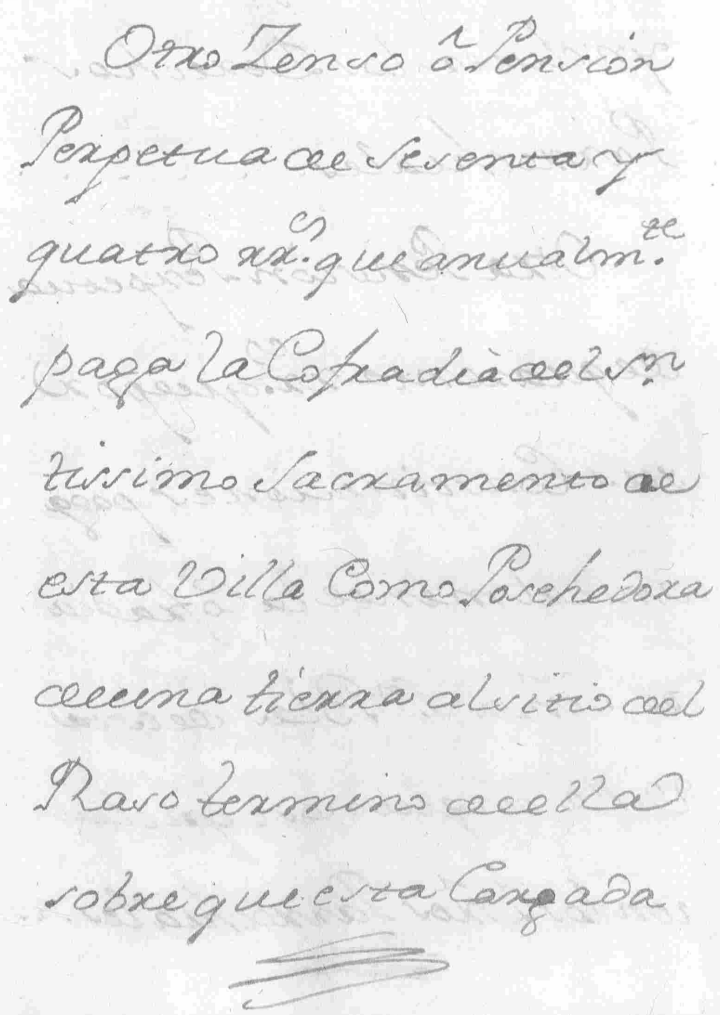 Otro Zenso ô Pensión
Perpetua de sesenta y
quatro rr.s que anualm.te
paga la Cofradia del Sn
tissimo Sacramento de
esta Villa Como Posehedora
de una tierra al sitio del
Raso termino de ella
sobre que esta Cargada